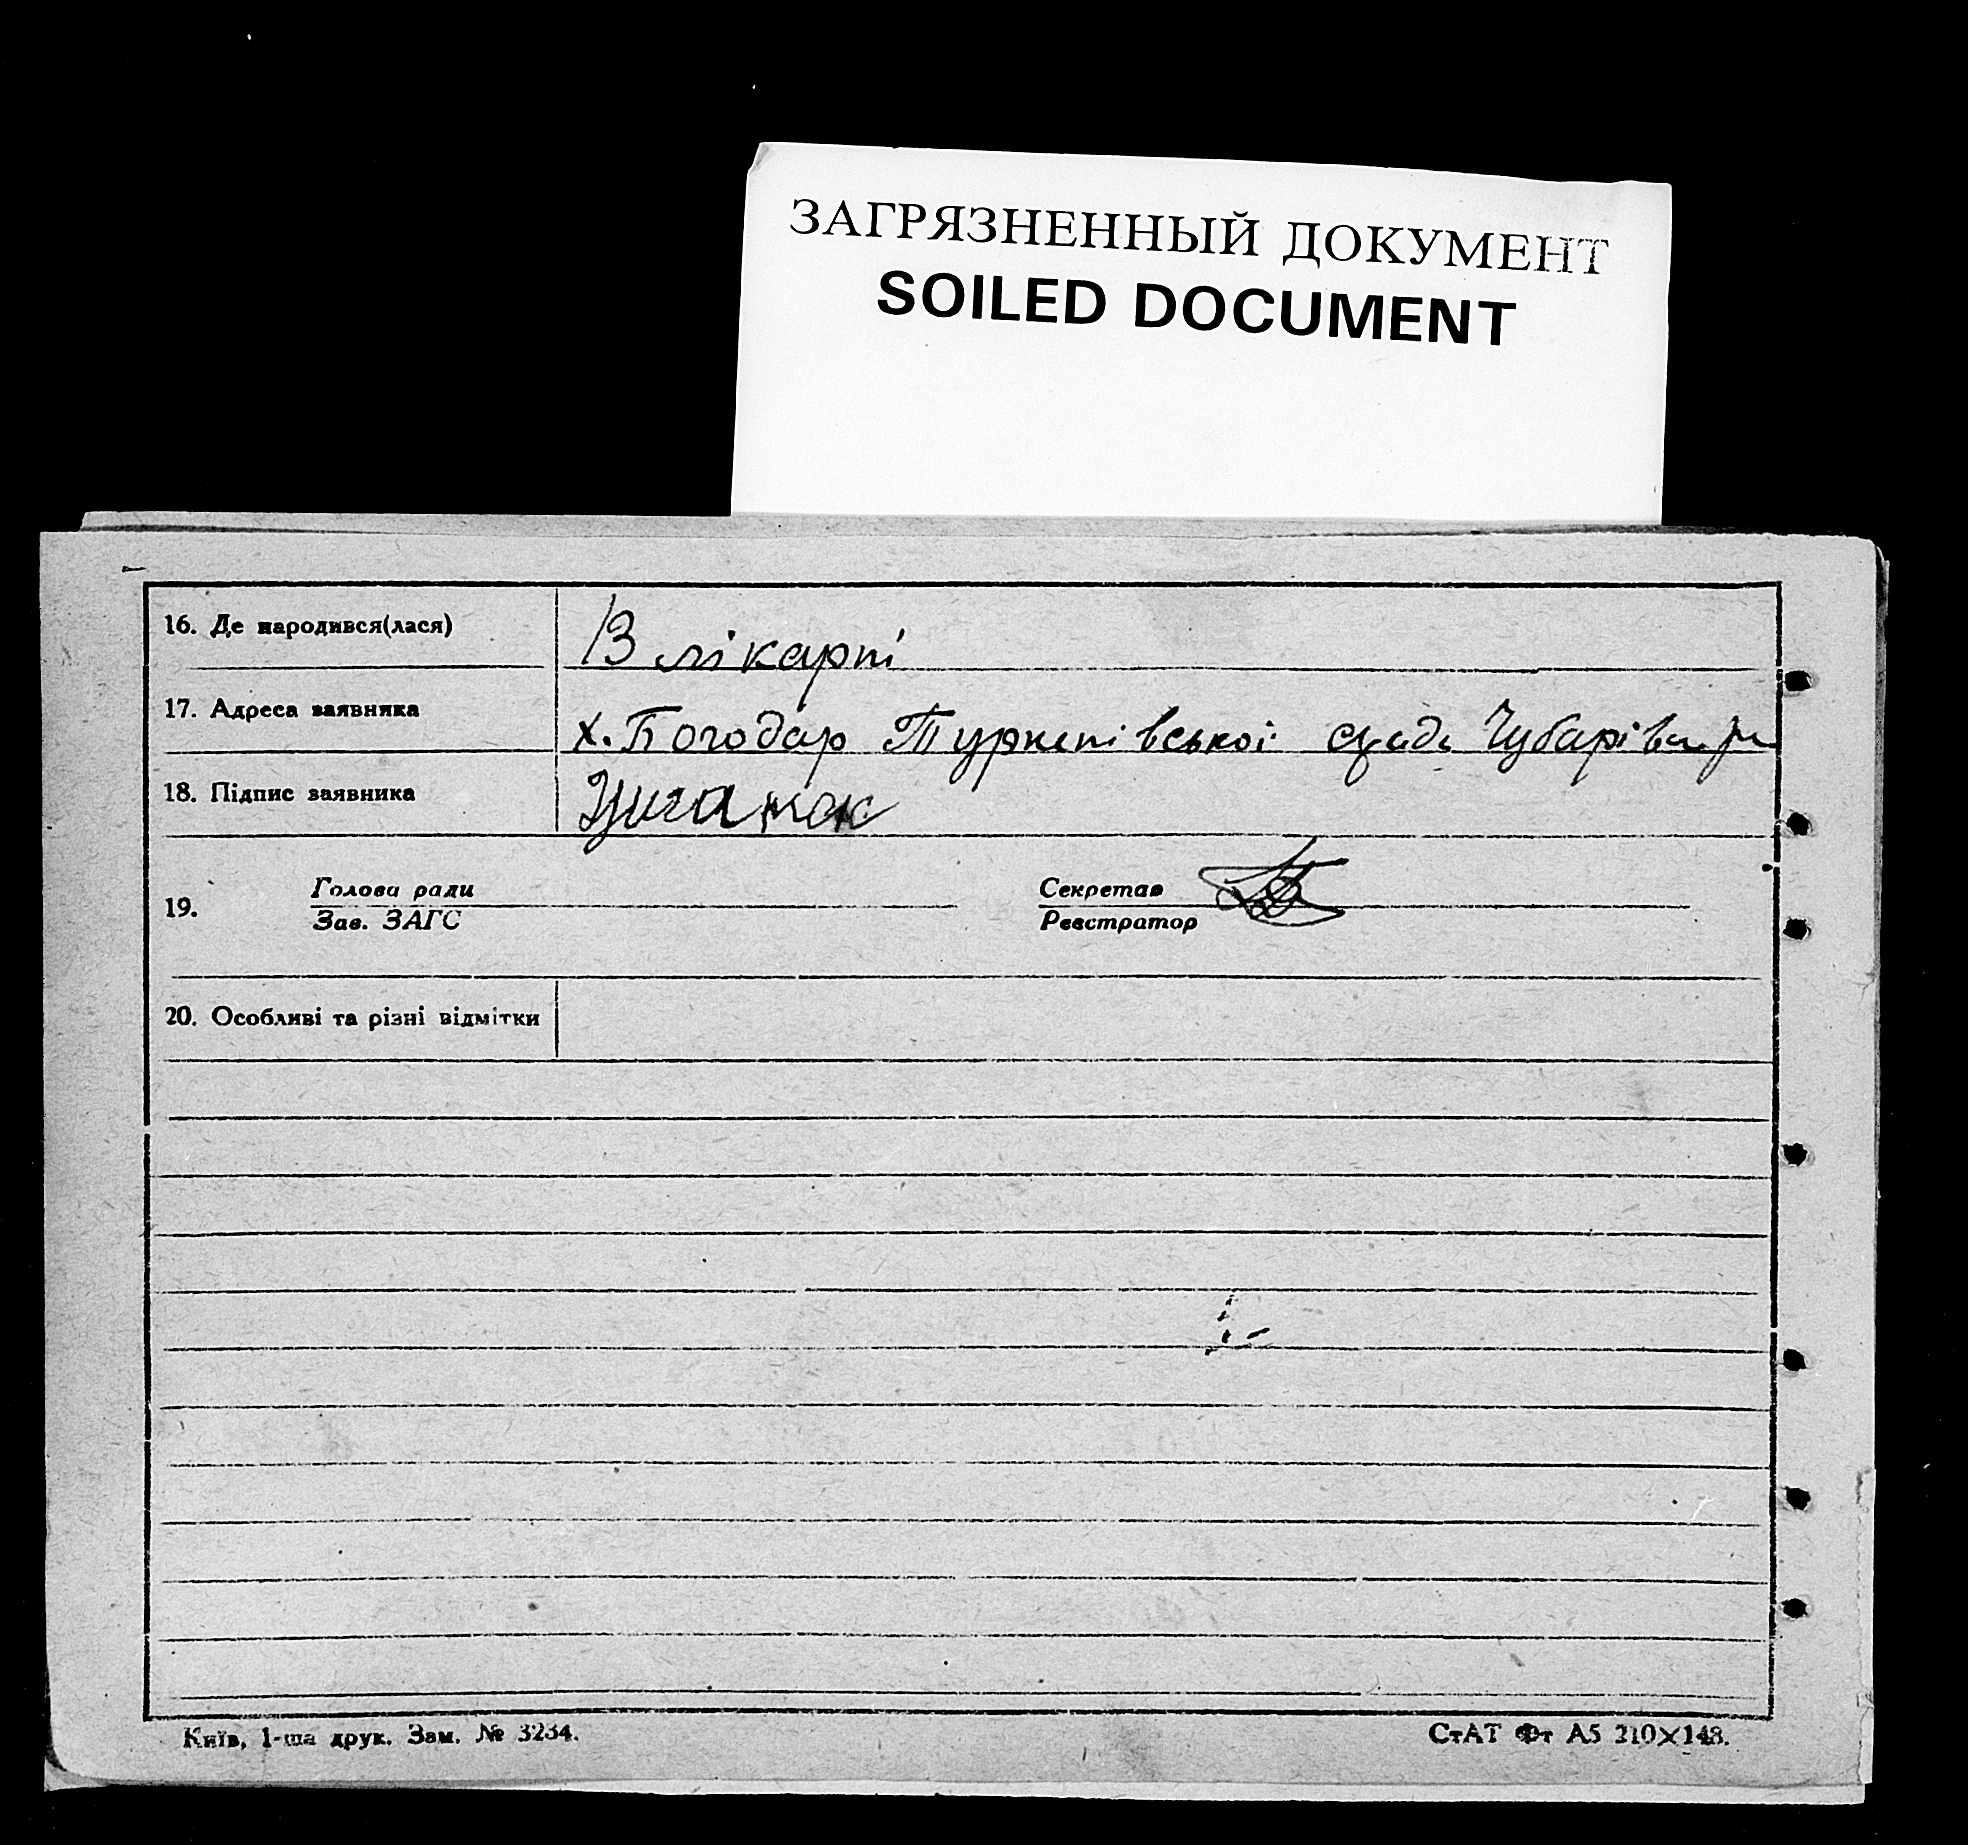 ЗАГРЯЗНЕННЫЙ ДОКУМЕНТ
SOILED DOCUMENT
16. Де народився(лася) В лікарні
17. Адреса заявника х. Богодар
18. Підпис заявника
19. Голова ради Секретар
Зав. ЗАГС Реєстратор
20. Особливі та різні відмітки
Київ, 1-ша друк. Зам. № 3234. СтАТ Фт А5 210×148.